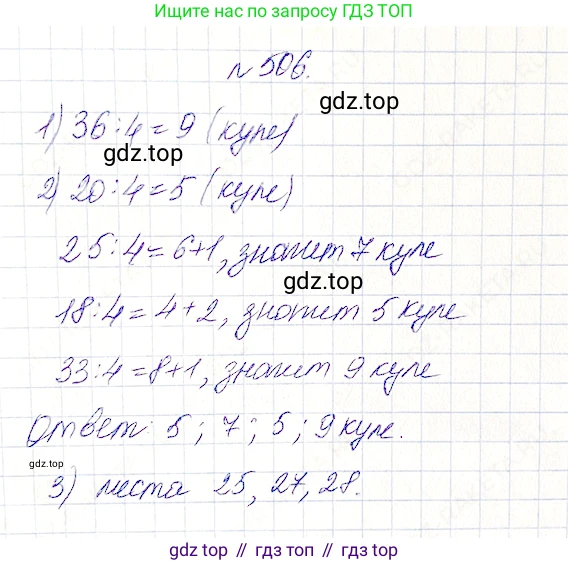 Ищите нас по запросу ГДЗ ТОП
№ 506.
gdz.top
1) 36:4=9 (купе)
gdz.top
2) 20:4=5 (купе)
25:4=6+1, значит 7 купе
gdz.top
18:4=4+2, значит 5 купе
33:4=8+1, значит 9 купе
Ответ: 5; 7; 5; 9 купе.
gdz.top
3) места 25, 27, 28.
gdz top // гдз топ // gdz.top